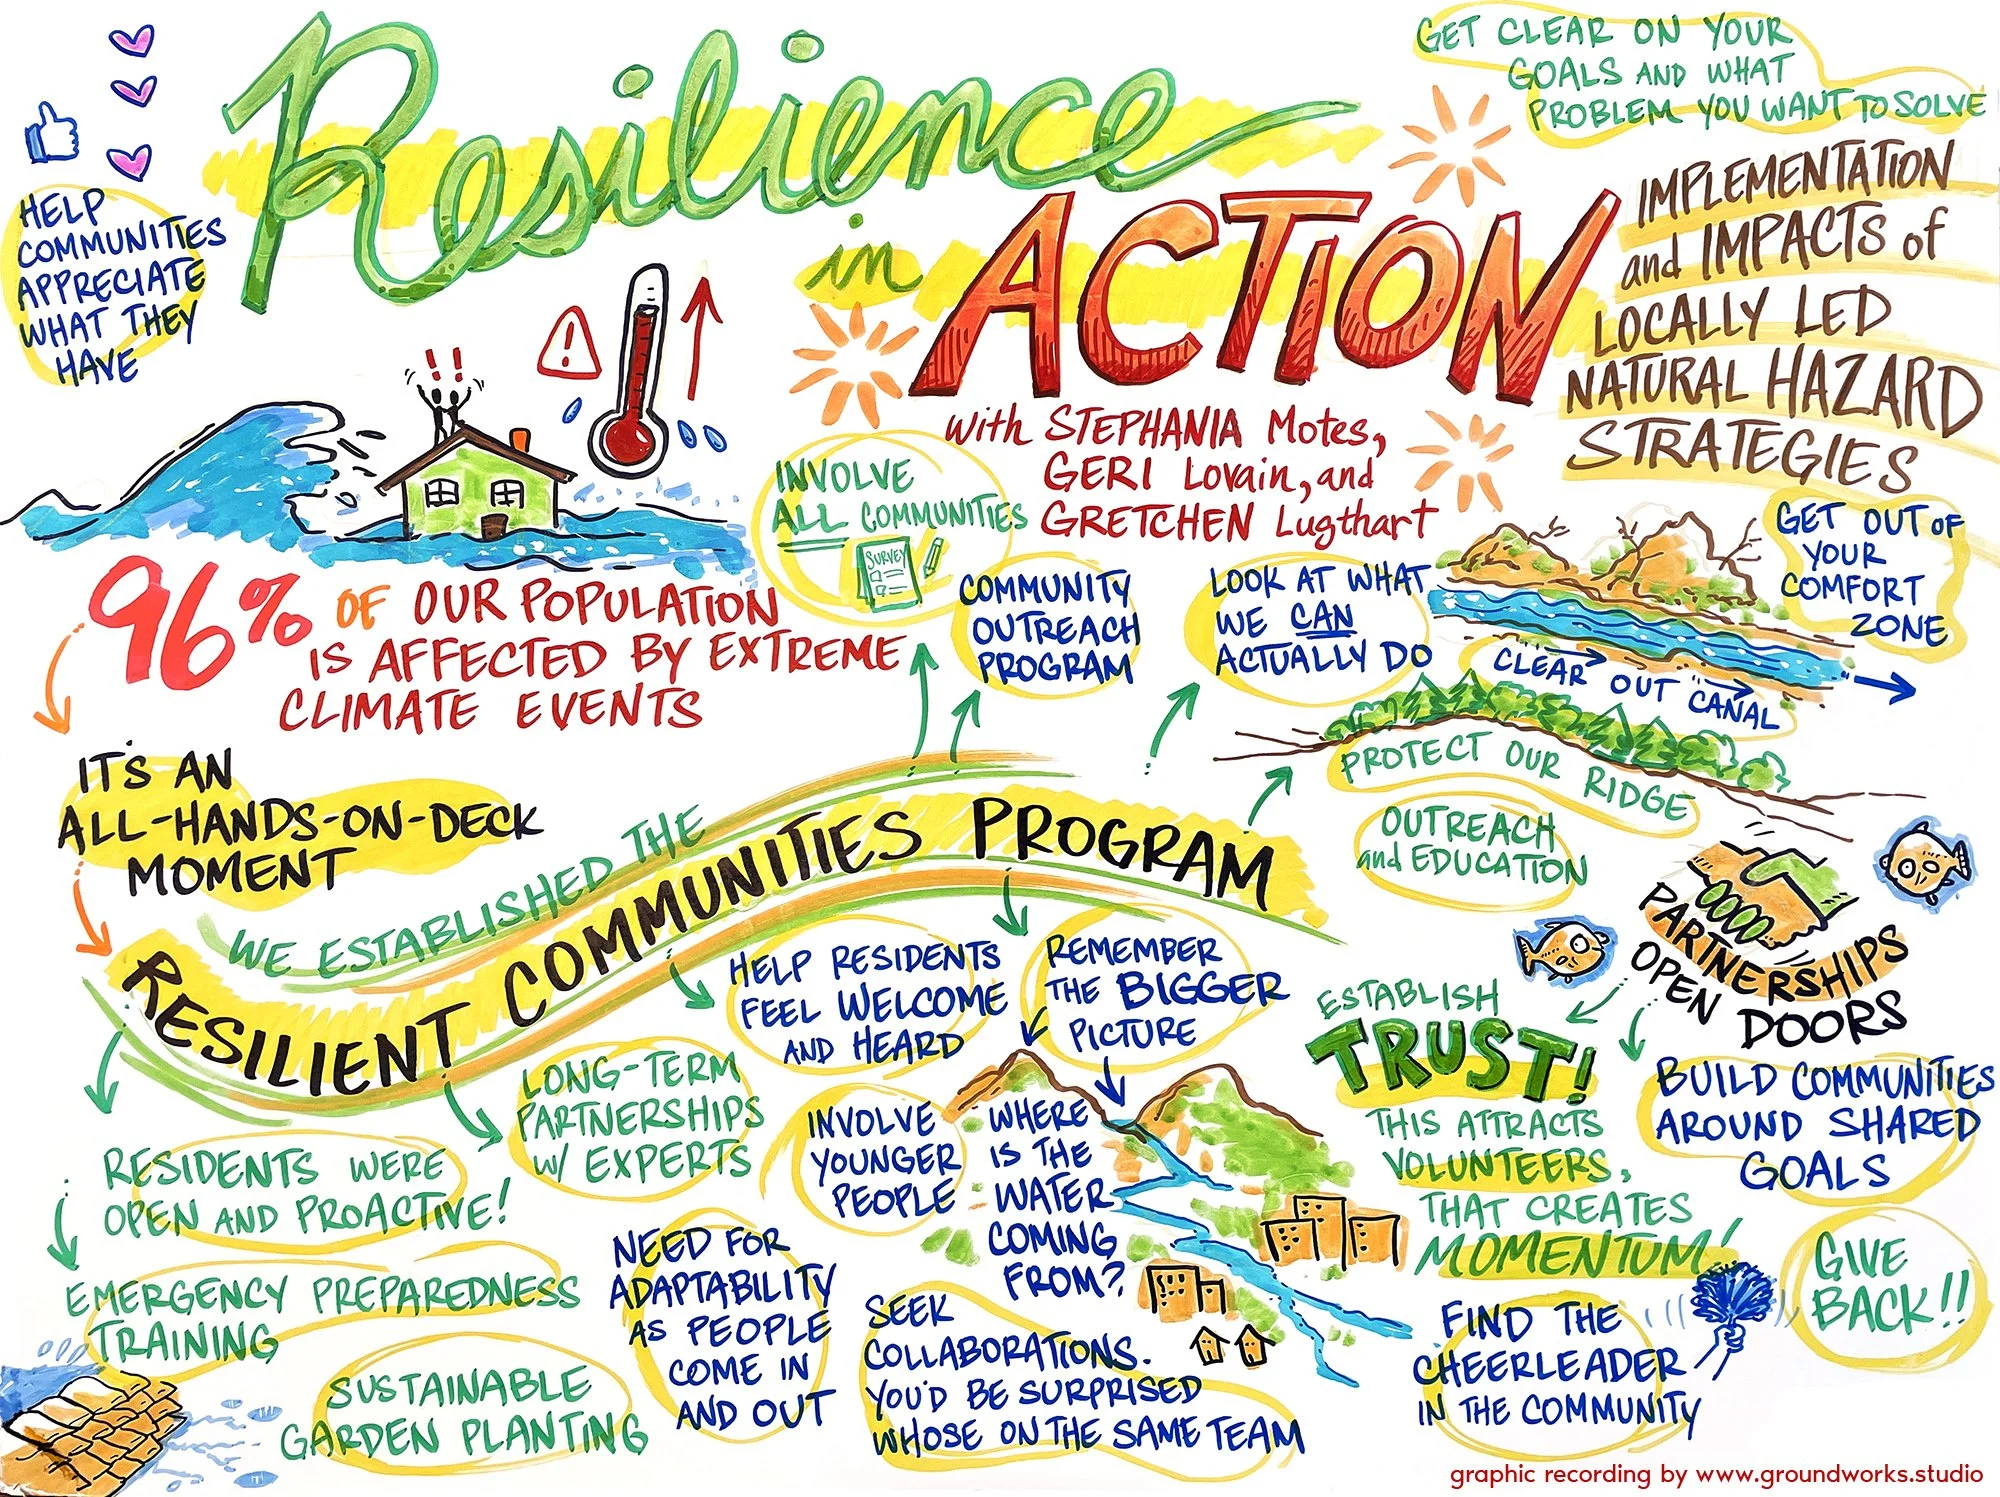 Resilience
in
ACTION
with STEPHANIA Motes,
GERI Lovain, and
GRETCHEN Lugthart
GET CLEAR ON YOUR
GOALS AND WHAT
PROBLEM YOU WANT TO SOLVE
IMPLEMENTATION
and IMPACTS of
LOCALLY LED
NATURAL HAZARD
STRATEGIES
HELP
COMMUNITIES
APPRECIATE
WHAT THEY
HAVE
!!
!
96% OF OUR POPULATION
IS AFFECTED BY EXTREME
CLIMATE EVENTS
IT'S AN
ALL-HANDS-ON-DECK
MOMENT
WE ESTABLISHED THE
RESILIENT COMMUNITIES PROGRAM
INVOLVE
ALL COMMUNITIES
SURVEY
COMMUNITY
OUTREACH
PROGRAM
LOOK AT WHAT
WE CAN
ACTUALLY DO
GET OUT OF
YOUR
COMFORT
ZONE
CLEAR OUT CANAL
PROTECT OUR RIDGE
OUTREACH
and EDUCATION
PARTNERSHIPS
OPEN DOORS
ESTABLISH
TRUST!
THIS ATTRACTS
VOLUNTEERS,
THAT CREATES
MOMENTUM!
BUILD COMMUNITIES
AROUND SHARED
GOALS
GIVE
BACK!!
FIND THE
CHEERLEADER
IN THE COMMUNITY
HELP RESIDENTS
FEEL WELCOME
AND HEARD
REMEMBER
THE BIGGER
PICTURE
LONG-TERM
PARTNERSHIPS
W/ EXPERTS
INVOLVE
YOUNGER
PEOPLE
WHERE
IS THE
WATER
COMING
FROM?
RESIDENTS WERE
OPEN AND PROACTIVE!
EMERGENCY PREPAREDNESS
TRAINING
SUSTAINABLE
GARDEN PLANTING
NEED FOR
ADAPTABILITY
AS PEOPLE
COME IN
AND OUT
SEEK
COLLABORATIONS.
YOU'D BE SURPRISED
WHOSE ON THE SAME TEAM
graphic recording by www.groundworks.studio